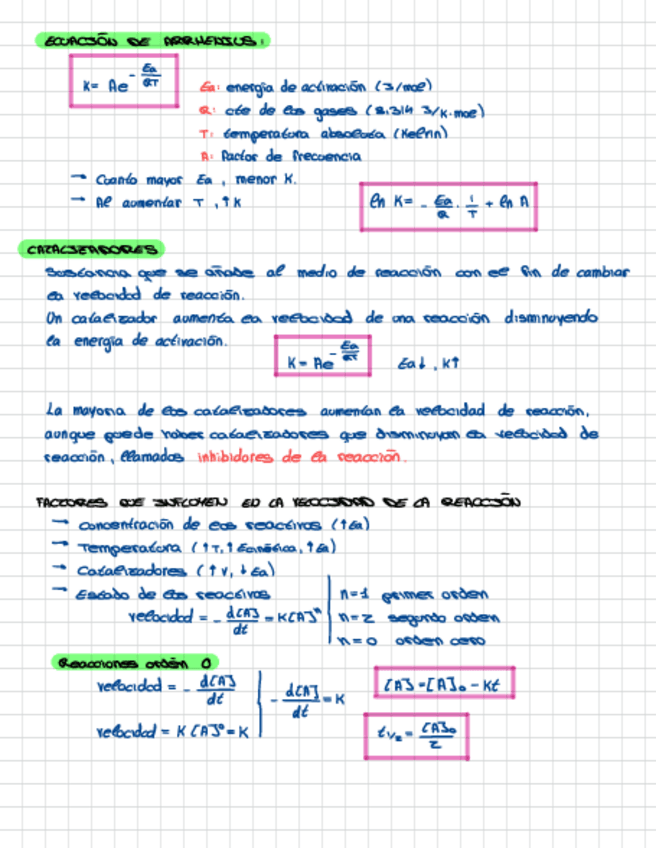 ECUACIÓN DE ARRHENIUS:
K = Ae^(-Ea/RT)
Ea: energía de activación (J/mol)
R: cte de los gases (8.314 J/K·mol)
T: temperatura absoluta (Kelvin)
A: Factor de frecuencia
→ Cuanto mayor Ea, menor K.
→ Al aumentar T, ↑K
ln K = - Ea/R · 1/T + ln A
CATALIZADORES
Sustancia que se añade al medio de reacción con el fin de cambiar
la velocidad de reacción.
Un catalizador aumenta la velocidad de una reacción disminuyendo
la energía de activación.
K = Ae^(-Ea/RT) Ea↓, K↑
La mayoría de los catalizadores aumentan la velocidad de reacción,
aunque puede haber catalizadores que disminuyan la velocidad de
reacción, llamados inhibidores de la reacción.
FACTORES QUE INFLUYEN EN LA VELOCIDAD DE LA REACCIÓN
→ Concentración de los reactivos (↑Ea)
→ Temperatura (↑T, ↑Ecinética, ↑Ea)
→ Catalizadores (↑v, ↓Ea)
→ Estado de los reactivos
velocidad = - d[A]/dt = K[A]^n
n=1 primer orden
n=2 segundo orden
n=0 orden cero
Reacciones orden 0
velocidad = - d[A]/dt
velocidad = K [A]^0 = K
- d[A]/dt = K
[A] = [A]₀ - Kt
t₁/₂ = [A]₀/2